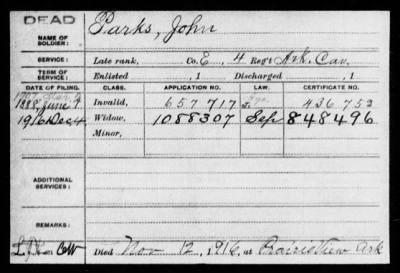 DEAD
NAME OF SOLDIER: Parks, John
SERVICE: Late rank, Co. E, 4 Reg't Ark. Cav.
TERM OF SERVICE: Enlisted , 1 Discharged , 1
DATE OF FILING. CLASS. APPLICATION NO. LAW. CERTIFICATE NO.
1907
1888, June 7 Invalid, 657 717 436 752
1916 Dec 4 Widow, 1088307 Sep 848496
Minor,
ADDITIONAL SERVICES:
REMARKS:
Died Nov 12, 1916, at Prairie View Ark